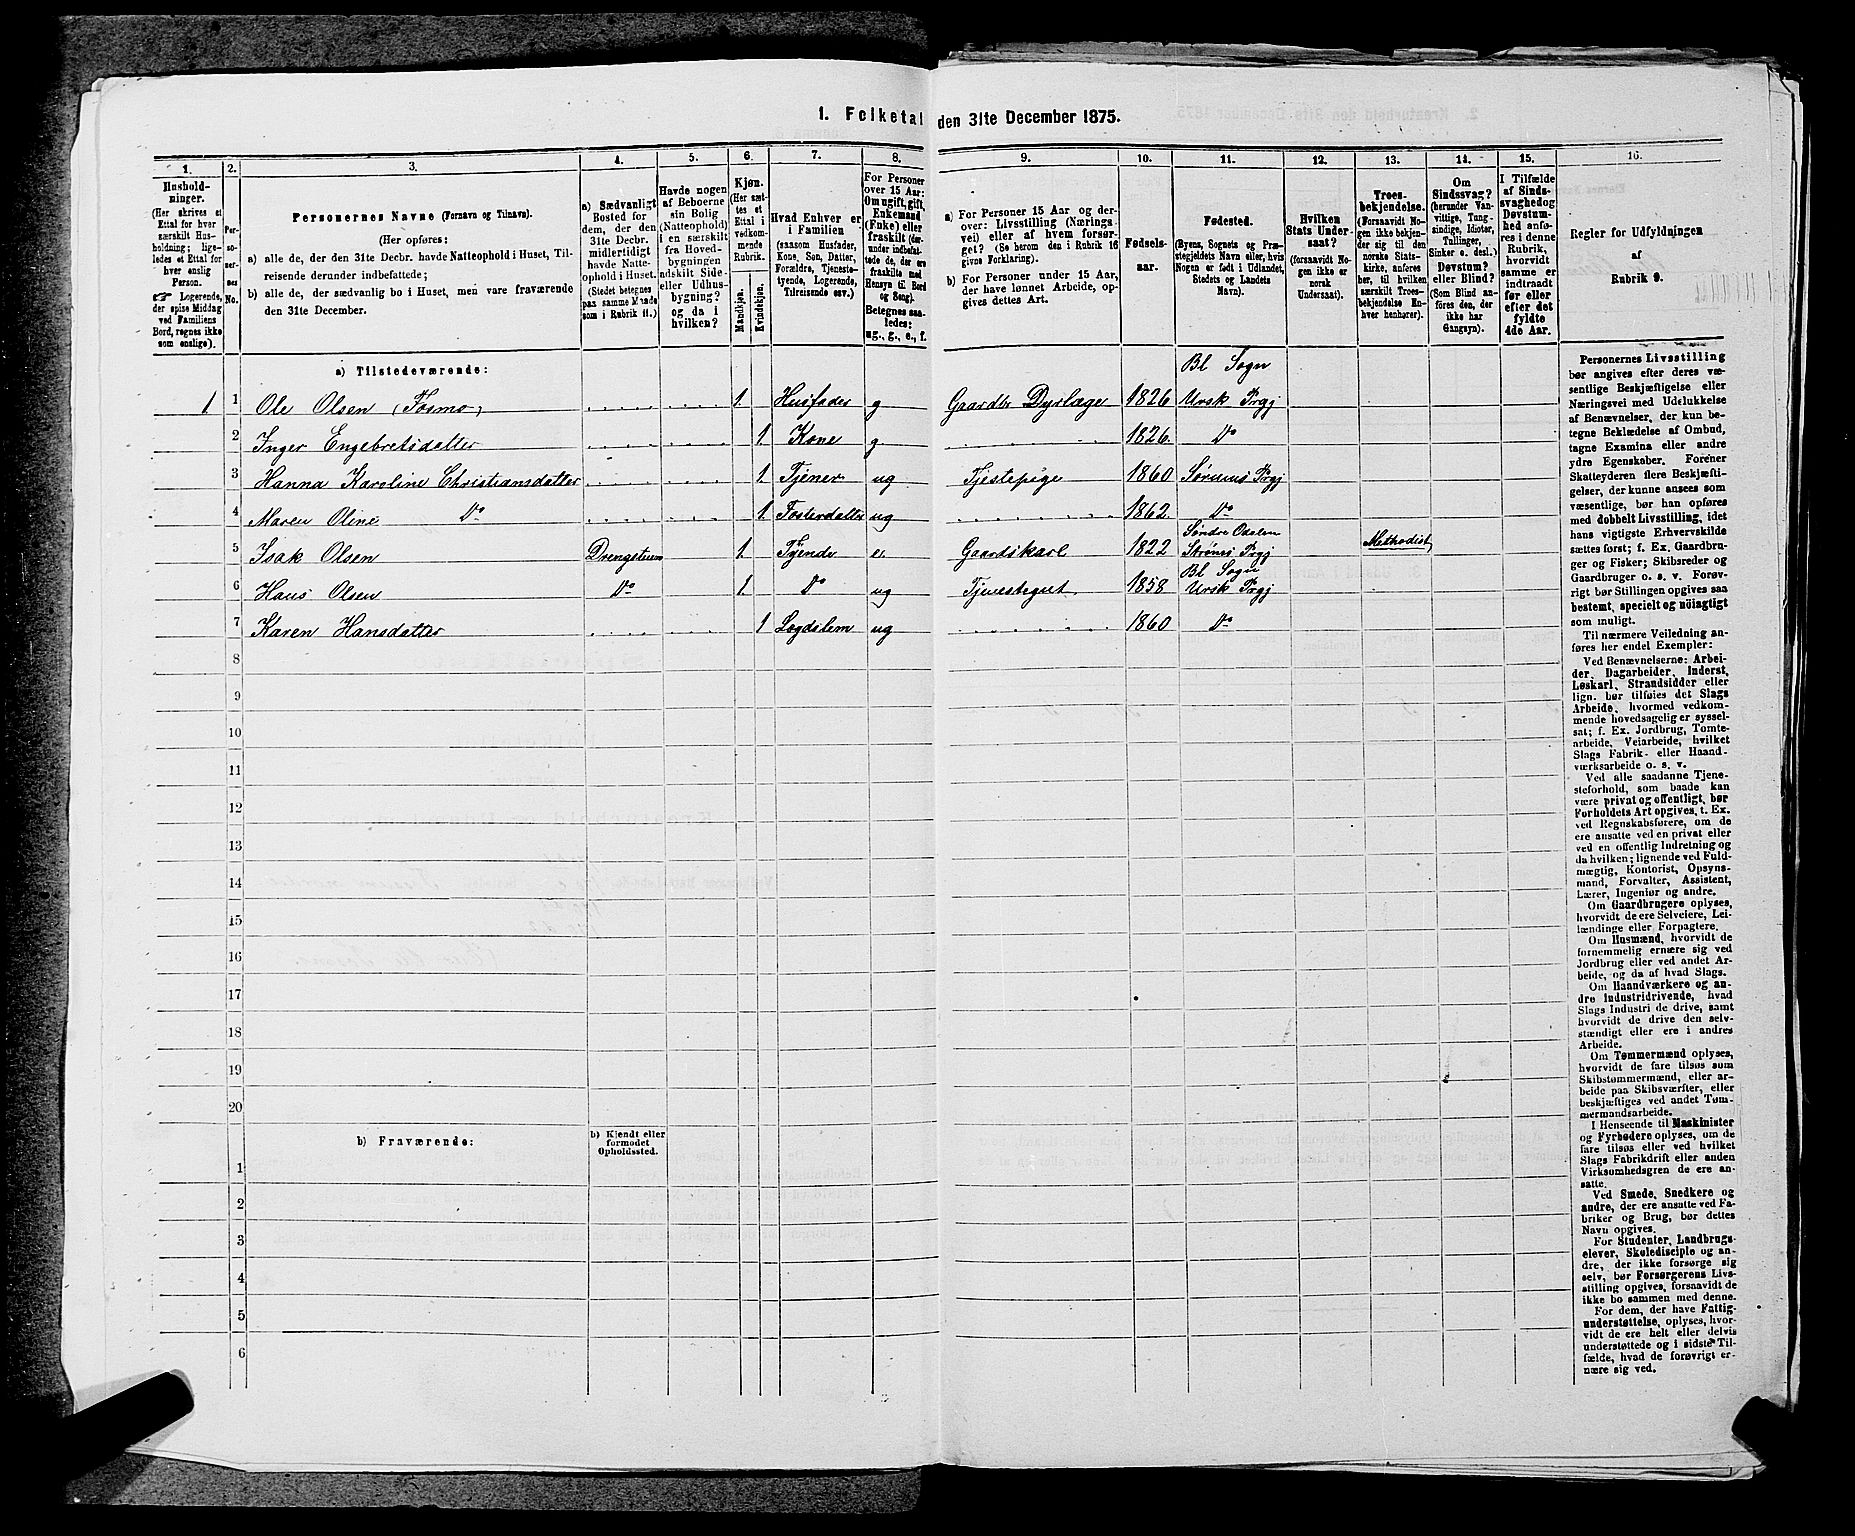 1. Folketal den 31te December 1875.
1. 2. 3. 4. 5. 6. 7. 8. 9. 10. 11. 12. 13. 14. 15. 16.
Hushold-
ninger.
(Her skrives et
Ettal for hver
særskilt Hus-
holdning; lige-
ledes et Ettal for
hver enslig
Person.
☞ Logerende,
der spise Middag
ved Familiens
Bord, regnes ikke
som enslige).
Per-
so-
ner-
nes
No.
Personernes Navne (Fornavn og Tilnavn).
(Her opføres:
a) alle de, der den 31te Decbr. havde Natteophold i Huset, Til-
reisende derunder indbefattede;
b) alle de, der sædvanlig bo i Huset, men vare fraværende
den 31te December.
a) Sædvanligt
Bosted for
dem, der den
31te Decbr.
midlertidigt
havde Natte-
ophold i Huset.
(Stedet betegnes
paa samme Maade
som i Rubrik 11.)
Havde nogen
af Beboerne
sin Bolig
(Natteophold)
i en særskilt
fra Hoved-
bygningen
adskilt Side-
eller Udhus-
bygning?
og da i
hvilken?
Kjøn.
(Her sæt-
tes et
Ettal i
vedkom-
mende
Rubrik.
Mandkjøn.
Kvindekjøn.
Hvad Enhver er
i Familien
(saasom Husfader,
Kone, Søn, Datter,
Forældre, Tjeneste-
tyende, Logerende,
Tilreisende osv.)
For Personer
over 15 Aar:
Om ugift, gift,
Enkemand
(Enke) eller
fraskilt (der-
under indbefat-
tede de, der ere
fraskilte med
Hensyn til Bord
og Seng).
Betegnes saa-
ledes:
ug., g., e., f.
a) For Personer 15 Aar og der-
over: Livsstilling (Nærings-
vei) eller af hvem forsør-
get? (Se herom den i Rubrik 16
givne Forklaring).
b) For Personer under 15 Aar,
der have lønnet Arbeide, op-
gives dettes Art.
Fødsels-
aar.
Fødested.
(Byens, Sognets og Præ-
stegjeldets Navn eller, hvis
Nogen er født i Udlandet,
Stedets og Landets
Navn).
Hvilken
Stats Under-
saat?
(forsaavidt No-
gen ikke er
norsk
Undersaat).
Troes-
bekjendelse.
(Forsaavidt No-
gen ikke bekjen-
der sig til den
norske Stats-
kirke, anføres
her, til hvilken
særskilt Troes-
bekjendelse En-
hver henhører).
Om
Sindssvag?
(herunder Van-
vittige, Tung-
sindige, Idioter,
Tullinger,
Sinker o. desl.)
eller Blind?
Døvstum?
(Som Blind an-
føres den, der
ikke har
Gangsyn).
I Tilfælde
af Sinds-
svaghed og
Døvstum-
hed anfø-
res i denne
Rubrik,
hvorvidt
samme er
indtraadt
før eller
efter det
fyldte
4de Aar.
Regler for Udfyldningen
af
Rubrik 9.
a) Tilstedeværende:
Bl Sogn
1. 1 Ole Olsen (Fosmo) 1. Husfader g Gaardbr Dyrlæge 1826 Ursk Prgj
2 Inger Engebretsdatter 1. Kone g. 1826. Do
3 Hanna Karoline Christiansdatter 1 Tjener ug Tjestepige 1860 Sørums Prgj
4 Maren Oline Do 1. Fosterdatter ug 1862. Do
Søndre Odalen
5 Isak Olsen 1. Tyende e. Gaardskarl 1822 Strøms Prgj Methodist
Bl Sogn
6 Hans Olsen Do 1. Do ug Tjenestegut 1858 Ursk Prgj
7 Karen Hansdatter 1 Lægdslem ug 1860 Do
8
9
10
11
12
13
14
15
16
17
18
19
20
b) Fraværende:
b) Kjendt eller
formodet
Opholdssted.
1
2
3
4
5
6
Personernes Livsstilling
bør angives efter deres væ-
sentlige Beskjæftigelse eller
Næringsvei med Udelukkelse
af Benævnelser, der kun be-
tegne Beklædelse af Ombud,
tagne Examina eller andre
ydre Egenskaber. Forener
Skatteyderen flere Beskjæfti-
gelser, der kunne ansees som
væsentlige, bør han opføres
med dobbelt Livsstilling, idet
hans vigtigste Erhvervskilde
sættes først; f. Ex. Gaardbru-
ger og Fisker; Skibsreder og
Gaardbruger o. s. v. Forøv-
rigt bør Stillingen opgives saa
bestemt, specielt og nöiagtigt
som muligt.
Til nærmere Veiledning an-
føres her endel Exempler:
Ved Benævnelserne: Arbei-
der, Dagarbeider, Inderst,
Løskarl, Strandsidder eller
lign. bør tilføies det Slags
Arbeide, hvormed vedkom-
mende hovedsagelig er syssel-
sat; f. Ex. Jordbrug, Tomte-
arbeide, Veiarbeide, hvilket
Slags Fabrik- eller Haand-
værksarbeide o. s. v.
Ved alle saadanne Tjene-
steforhold, som baade kan
være privat og offentligt, bør
Forholdets Art opgives, t. Ex.
ved Regnskabsførere, om de
ere ansatte ved en privat eller
ved en offentlig Indretning og
da hvilken; lignende ved Fuld-
mægtig, Kontorist, Opsyns-
mand, Forvalter, Assistent,
Lærer, Ingeniør og andre.
Om Gaardbrugere oplyses,
hvorvidt de ere Selveiere, Lei-
lændinge eller Forpagtere.
Om Husmænd, hvorvidt de
fornemmelig ernære sig ved
Jordbrug eller ved andet Ar-
beide, og da af hvad Slags.
Om Haandværkere og an-
dre Industridrivende, hvad
Slags Industri de drive, samt
hvorvidt de drive den selv-
stændigt eller ere i andres
Arbeide.
Om Tømmermænd oplyses,
hvorvidt de fare tilsøs som
Skibstømmermænd, eller ar-
beide paa Skibsværfter, eller
beskjæftiges ved andet Tøm-
mermandsarbeide.
I Henseende til Maskinister
og Fyrbødere oplyses, om de
fare tilsøs eller ved hvilket
Slags Fabrikdrift eller anden
Virksomhedsgren de ere an-
satte.
Ved Smede, Snedkere og
andre, der ere ansatte ved Fa-
briker og Brug, bør dettes
Navn opgives.
For Studenter, Landbrugs-
elever, Skoledisciple og an-
dre, der ikke forsørge sig
selv, bør Forsørgerens Livs-
stilling opgives, forsaavidt de
ikke bo sammen med denne.
For dem, der have Fattig-
understøttelse, oplyses, hvor-
vidt de ere helt eller delvis
understøttede og i sidste Til-
fælde, hvad de forøvrigt er-
nære sig ved.